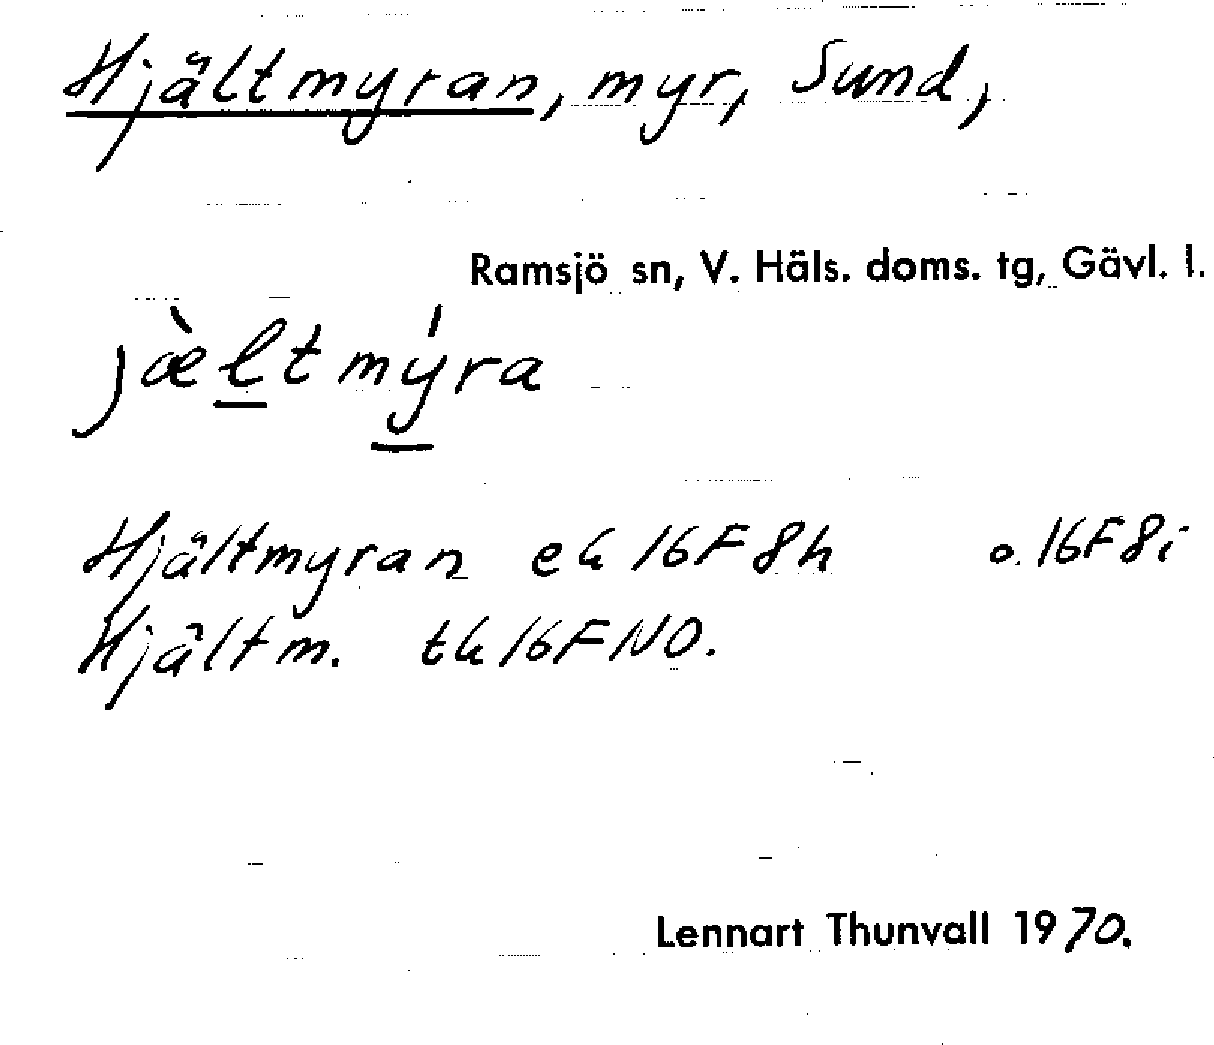 Hjältmyran, myr, Sund,
Ramsjö sn, V. Häls. doms. tg, Gävl. l.
jæ̀ltmýra
Hjältmyran ek 16F 8h o. 16F 8i
Hjältm. tk 16F NO.
Lennart Thunvall 1970.